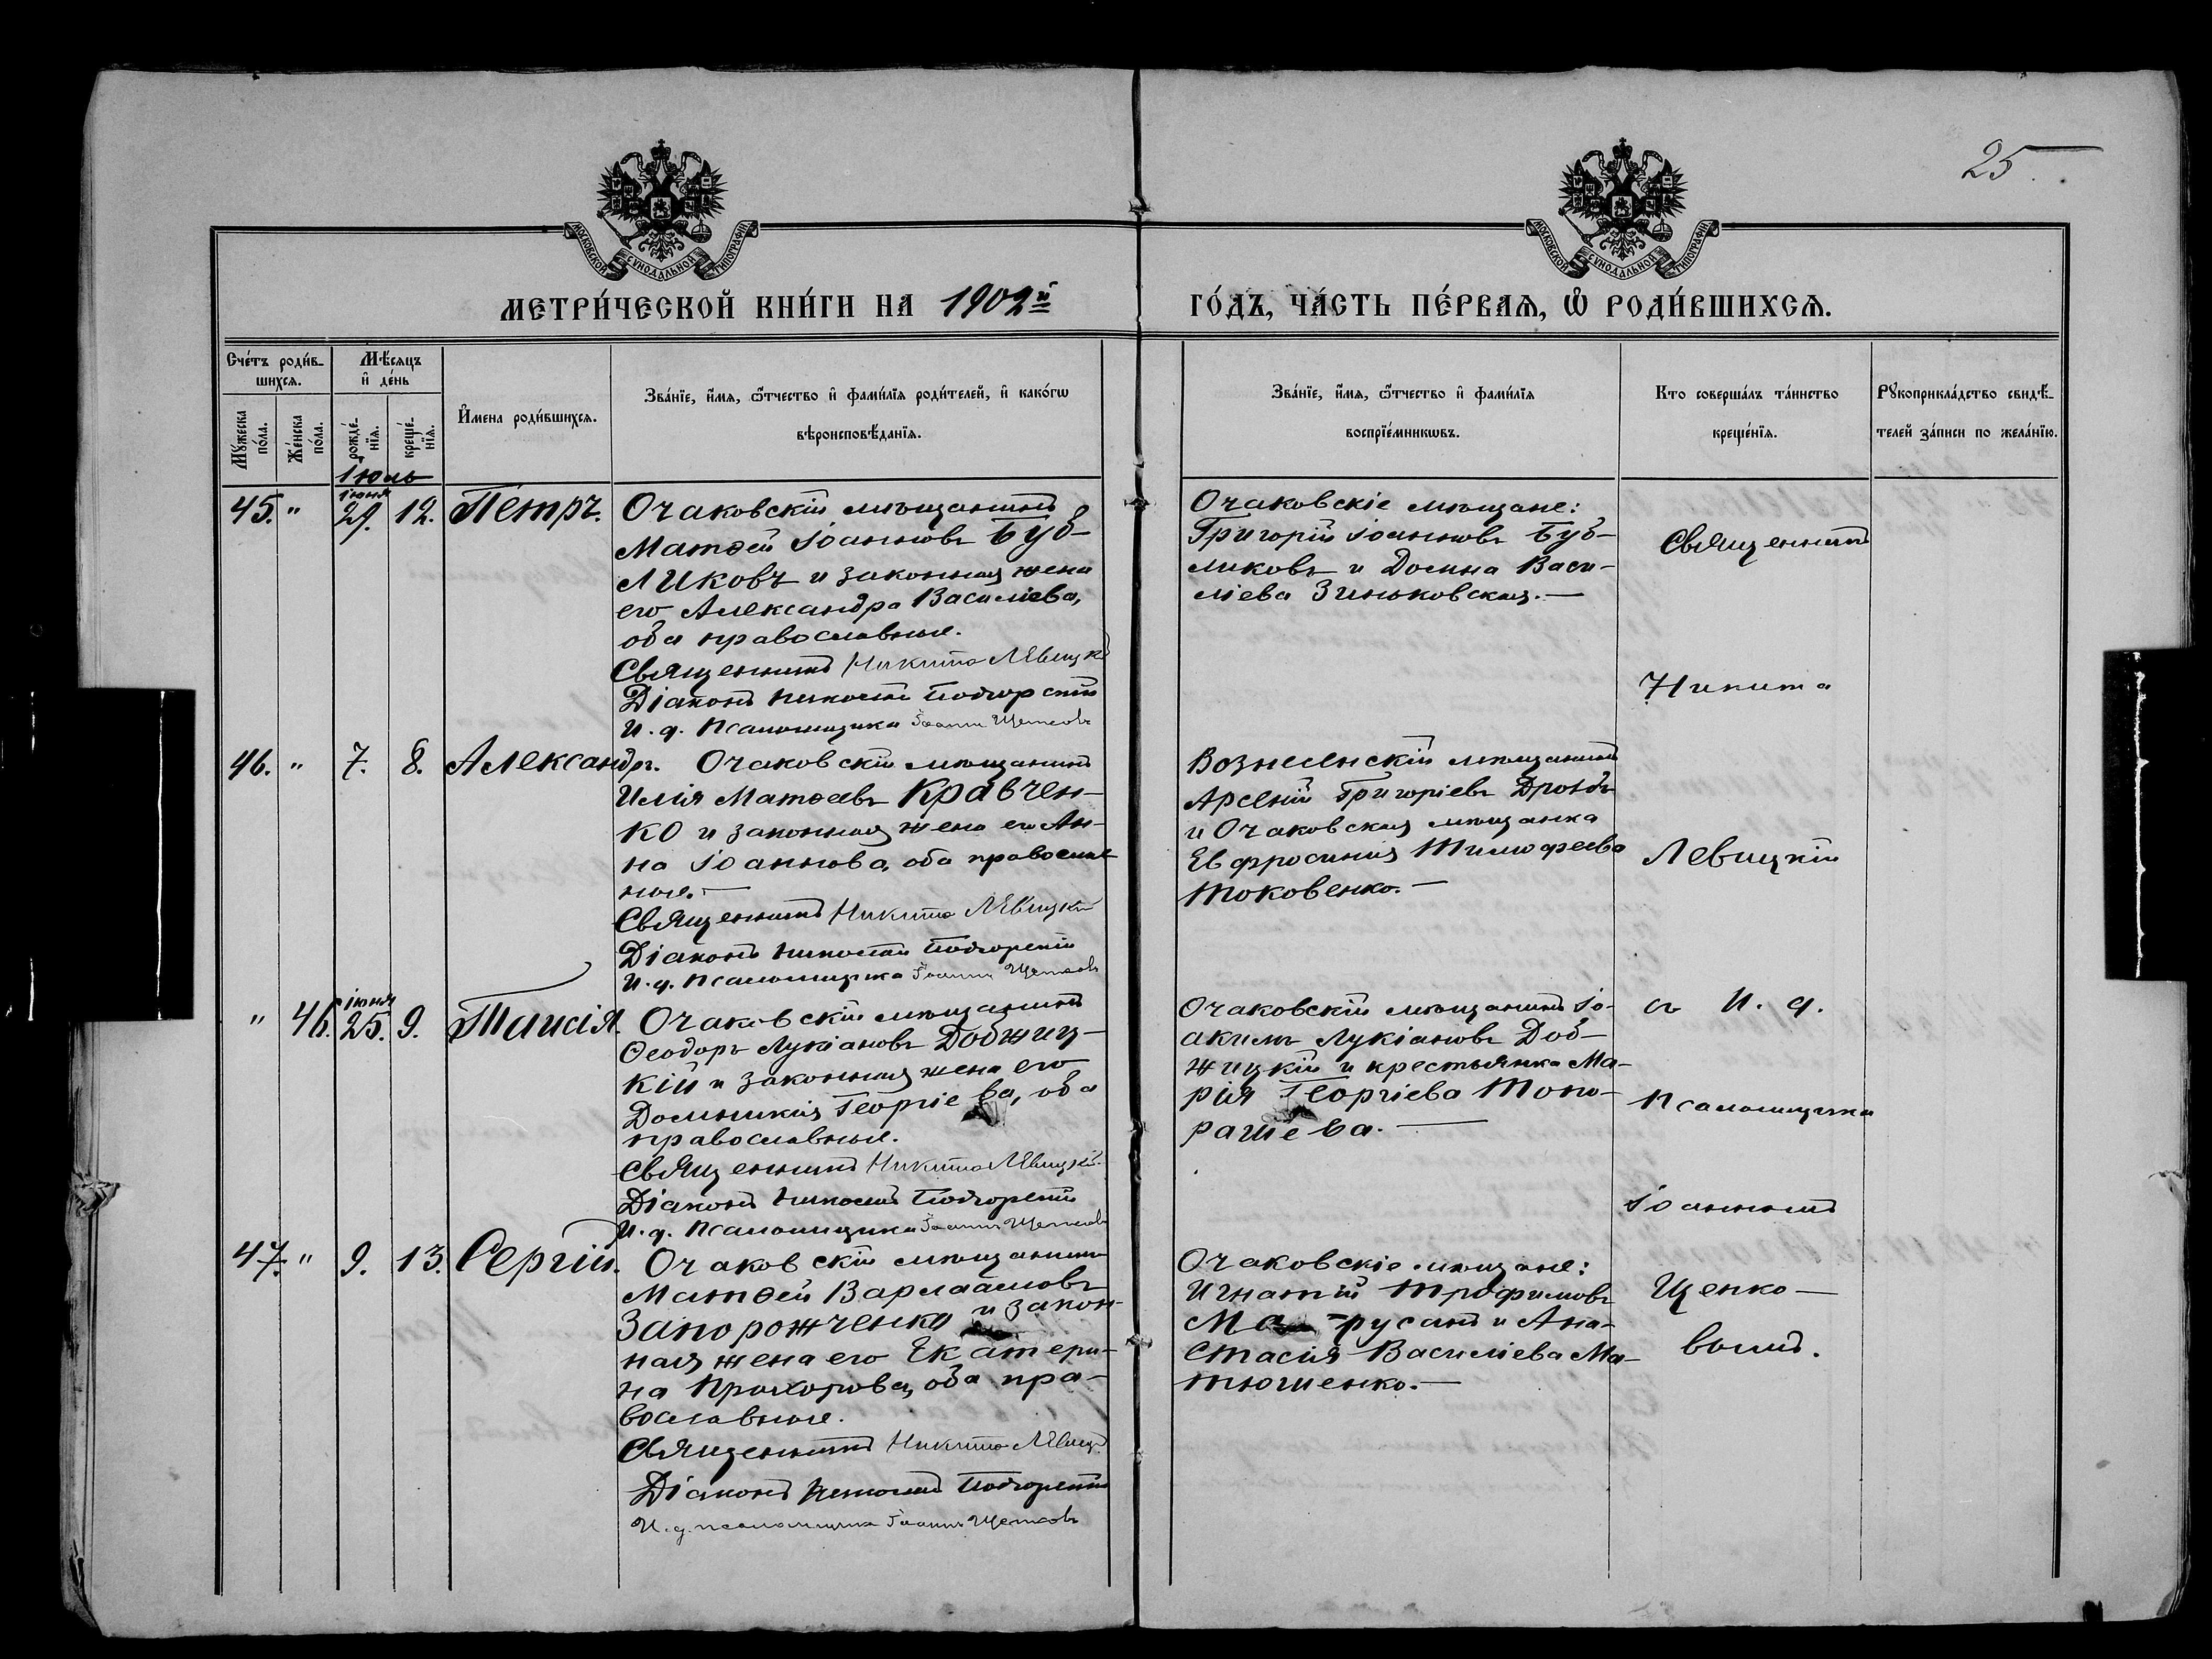 25
МОСКОВСКОЙ СѴНОДАЛЬНОЙ ТИПОГРАФІИ
МОСКОВСКОЙ СѴНОДАЛЬНОЙ ТИПОГРАФІИ
МЕТРИ́ЧЕСКОЙ КНИ́ГИ НА 1902й ГО́ДЪ, ЧА́СТЬ ПЕ́РВАѦ, Ѽ РОДИ́ВШИХСѦ.
Сче́тъ роди́в-
шихсѧ.
Мꙋжеска по́ла.
Же́нска по́ла.
Мѣ́сѧцъ
и҆ де́нь
рожде́-нїѧ.
креще́-нїѧ.
И҆мена роди́вшихсѧ.
Зва́нїе, и҆́мѧ, ѻ҆́тчество и҆ фами́лїѧ роди́телей, и҆ како́гѡ
вѣроисповѣ́данїѧ.
Зва́нїе, и҆́мѧ, ѻ҆́тчество и҆ фами́лїѧ
воспрїе́мникѡвъ.
Кто соверша́лъ та́инство
креще́нїѧ.
Рꙋкоприкла́дство свидѣ́-
телей за́писи по жела́нїю.
Іюль
45. " іюня 29. 12. Петръ.
Очаковскій мѣщанинъ
Матѳей Іоанновъ Буб-
ликовъ и законная жена
его Александра Василіева,
оба православные.
Священникъ Никита Левицкій
Діаконъ Николай Подгорскій
И. д. псаломщика Іоаннъ Щенковъ
Очаковскіе мѣщане:
Григорій Іоанновъ Буб-
ликовъ и Домна Васи-
ліева Зиньковская.—
46. " 7. 8. Александръ.
Очаковскій мѣщанинъ
Илія Матѳеевъ Кравчен-
ко и законная жена его Ан-
на Іоаннова, оба православ-
ные.—
Священникъ Никита Левицкій
Діаконъ Николай Подгорскій
И. д. псаломщика Іоаннъ Щенковъ
Вознесенскій мѣщанинъ
Арсеній Григоріевъ Дроздъ
и Очаковская мѣщанка
Евфросинія Тимофеева
Токовенко.—
" 46. іюня 25. 9. Таисія.
Очаковскій мѣщанинъ
Ѳеодоръ Лукіановъ Добжиц-
кій и законная жена его
Домникія Георгіева, оба
православные.
Священникъ Никита Левицкій
Діаконъ Николай Подгорскій
И. д. псаломщика Іоаннъ Щенковъ
Очаковскій мѣщанинъ Іо-
акимъ Лукіановъ Доб-
жицкій и крестьянка Ма-
рія Георгіева Топо-
рашева.—
47. " 9. 13. Сергій.
Очаковскій мѣщанинъ
Матѳей Варлаамовъ
Запорожченко и закон-
ная жена его Екатери-
на Прохорова, оба пра-
вославные.
Священникъ Никита Левицкій
Діаконъ Николай Подгорскій
И. д. псаломщика Іоаннъ Щенковъ
Очаковскіе мѣщане:
Игнатій Трофимовъ
Ма-русанъ и Ана-
стасія Василіева Ма-
тюшенко.—
Священникъ
Никита
Левицкій
съ И. д.
псаломщика
Іоанномъ
Щенко-
вымъ.